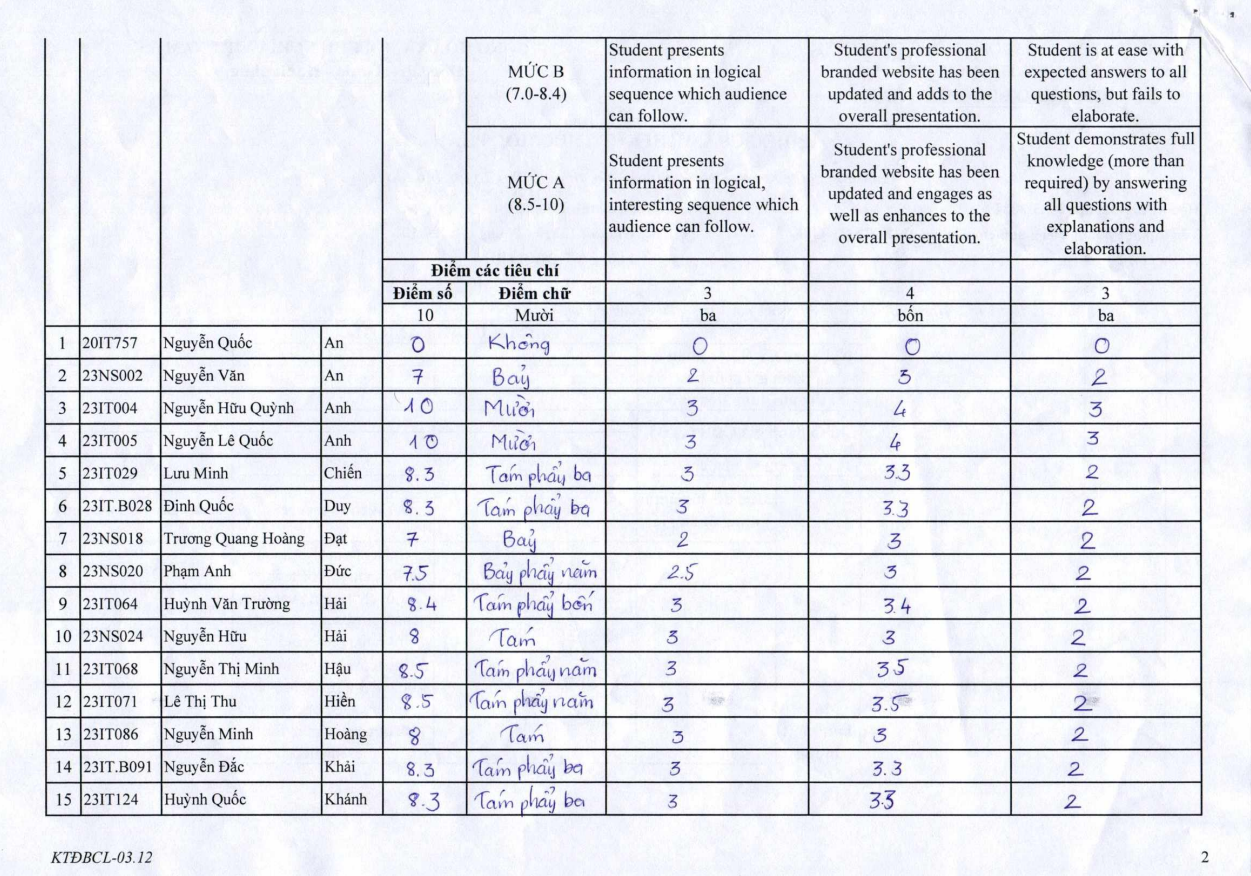 MỨC B
(7.0-8.4)
Student presents
information in logical
sequence which audience
can follow.
Student's professional
branded website has been
updated and adds to the
overall presentation.
Student is at ease with
expected answers to all
questions, but fails to
elaborate.
MỨC A
(8.5-10)
Student presents
information in logical,
interesting sequence which
audience can follow.
Student's professional
branded website has been
updated and engages as
well as enhances to the
overall presentation.
Student demonstrates full
knowledge (more than
required) by answering
all questions with
explanations and
elaboration.
Điểm các tiêu chí
Điểm số Điểm chữ 3 4 3
10 Mười ba bốn ba
1 20IT757 Nguyễn Quốc An 0 Không 0 0 0
2 23NS002 Nguyễn Văn An 7 Bảy 2 3 2
3 23IT004 Nguyễn Hữu Quỳnh Anh 10 Mười 3 4 3
4 23IT005 Nguyễn Lê Quốc Anh 10 Mười 3 4 3
5 23IT029 Lưu Minh Chiến 8.3 Tám phẩy ba 3 3.3 2
6 23IT.B028 Đinh Quốc Duy 8.3 Tám phẩy ba 3 3.3 2
7 23NS018 Trương Quang Hoàng Đạt 7 Bảy 2 3 2
8 23NS020 Phạm Anh Đức 7.5 Bảy phẩy năm 2.5 3 2
9 23IT064 Huỳnh Văn Trường Hải 8.4 Tám phẩy bốn 3 3.4 2
10 23NS024 Nguyễn Hữu Hải 8 Tám 3 3 2
11 23IT068 Nguyễn Thị Minh Hậu 8.5 Tám phẩy năm 3 3.5 2
12 23IT071 Lê Thị Thu Hiền 8.5 Tám phẩy năm 3 3.5 2
13 23IT086 Nguyễn Minh Hoàng 8 Tám 3 3 2
14 23IT.B091 Nguyễn Đắc Khải 8.3 Tám phẩy ba 3 3.3 2
15 23IT124 Huỳnh Quốc Khánh 8.3 Tám phẩy ba 3 3.3 2
KTĐBCL-03.12 2